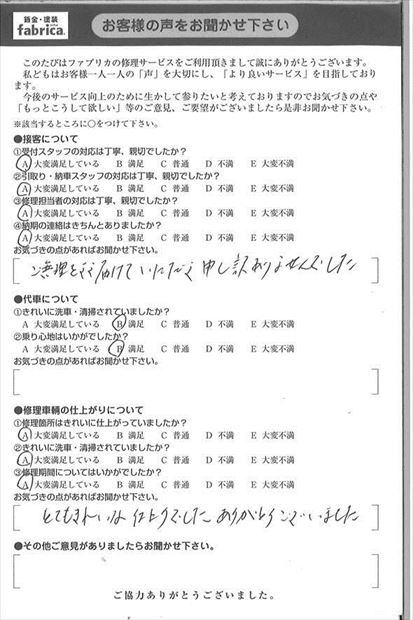 鈑金・塗装
fabrica.
お客様の声をお聞かせ下さい
このたびはファブリカの修理サービスをご利用頂きまして誠にありがとうございます。
私どもはお客様一人一人の「声」を大切にし、「より良いサービス」を目指しており
ます。
今後のサービス向上のために生かして参りたいと考えておりますのでお気づきの点や
「もっとこうして欲しい」等のご意見、ご要望がございましたら是非お聞かせ下さい。
※該当するところに○をつけて下さい。
●接客について
①受付スタッフの対応は丁寧、親切でしたか?
A 大変満足している B 満足 C 普通 D 不満 E 大変不満
②引取り・納車スタッフの対応は丁寧、親切でしたか?
A 大変満足している B 満足 C 普通 D 不満 E 大変不満
③修理担当者の対応は丁寧、親切でしたか?
A 大変満足している B 満足 C 普通 D 不満 E 大変不満
④納期の連絡はきちんとありましたか?
A 大変満足している B 満足 C 普通 D 不満 E 大変不満
お気づきの点があればお聞かせ下さい。
ご無理を 届けていただき 申し訳ありませんでした
●代車について
①きれいに洗車・清掃されていましたか?
A 大変満足している B 満足 C 普通 D 不満 E 大変不満
②乗り心地はいかがでしたか?
A 大変満足している B 満足 C 普通 D 不満 E 大変不満
お気づきの点があればお聞かせ下さい。
●修理車輌の仕上がりについて
①修理箇所はきれいに仕上がっていましたか?
A 大変満足している B 満足 C 普通 D 不満 E 大変不満
②きれいに洗車・清掃されていましたか?
A 大変満足している B 満足 C 普通 D 不満 E 大変不満
③修理期間についてはいかがでしたか?
A 大変満足している B 満足 C 普通 D 不満 E 大変不満
お気づきの点があればお聞かせ下さい。
とてもきれいな仕上りでした ありがとうございました
●その他ご意見がありましたらお聞かせ下さい。
ご協力ありがとうございました。